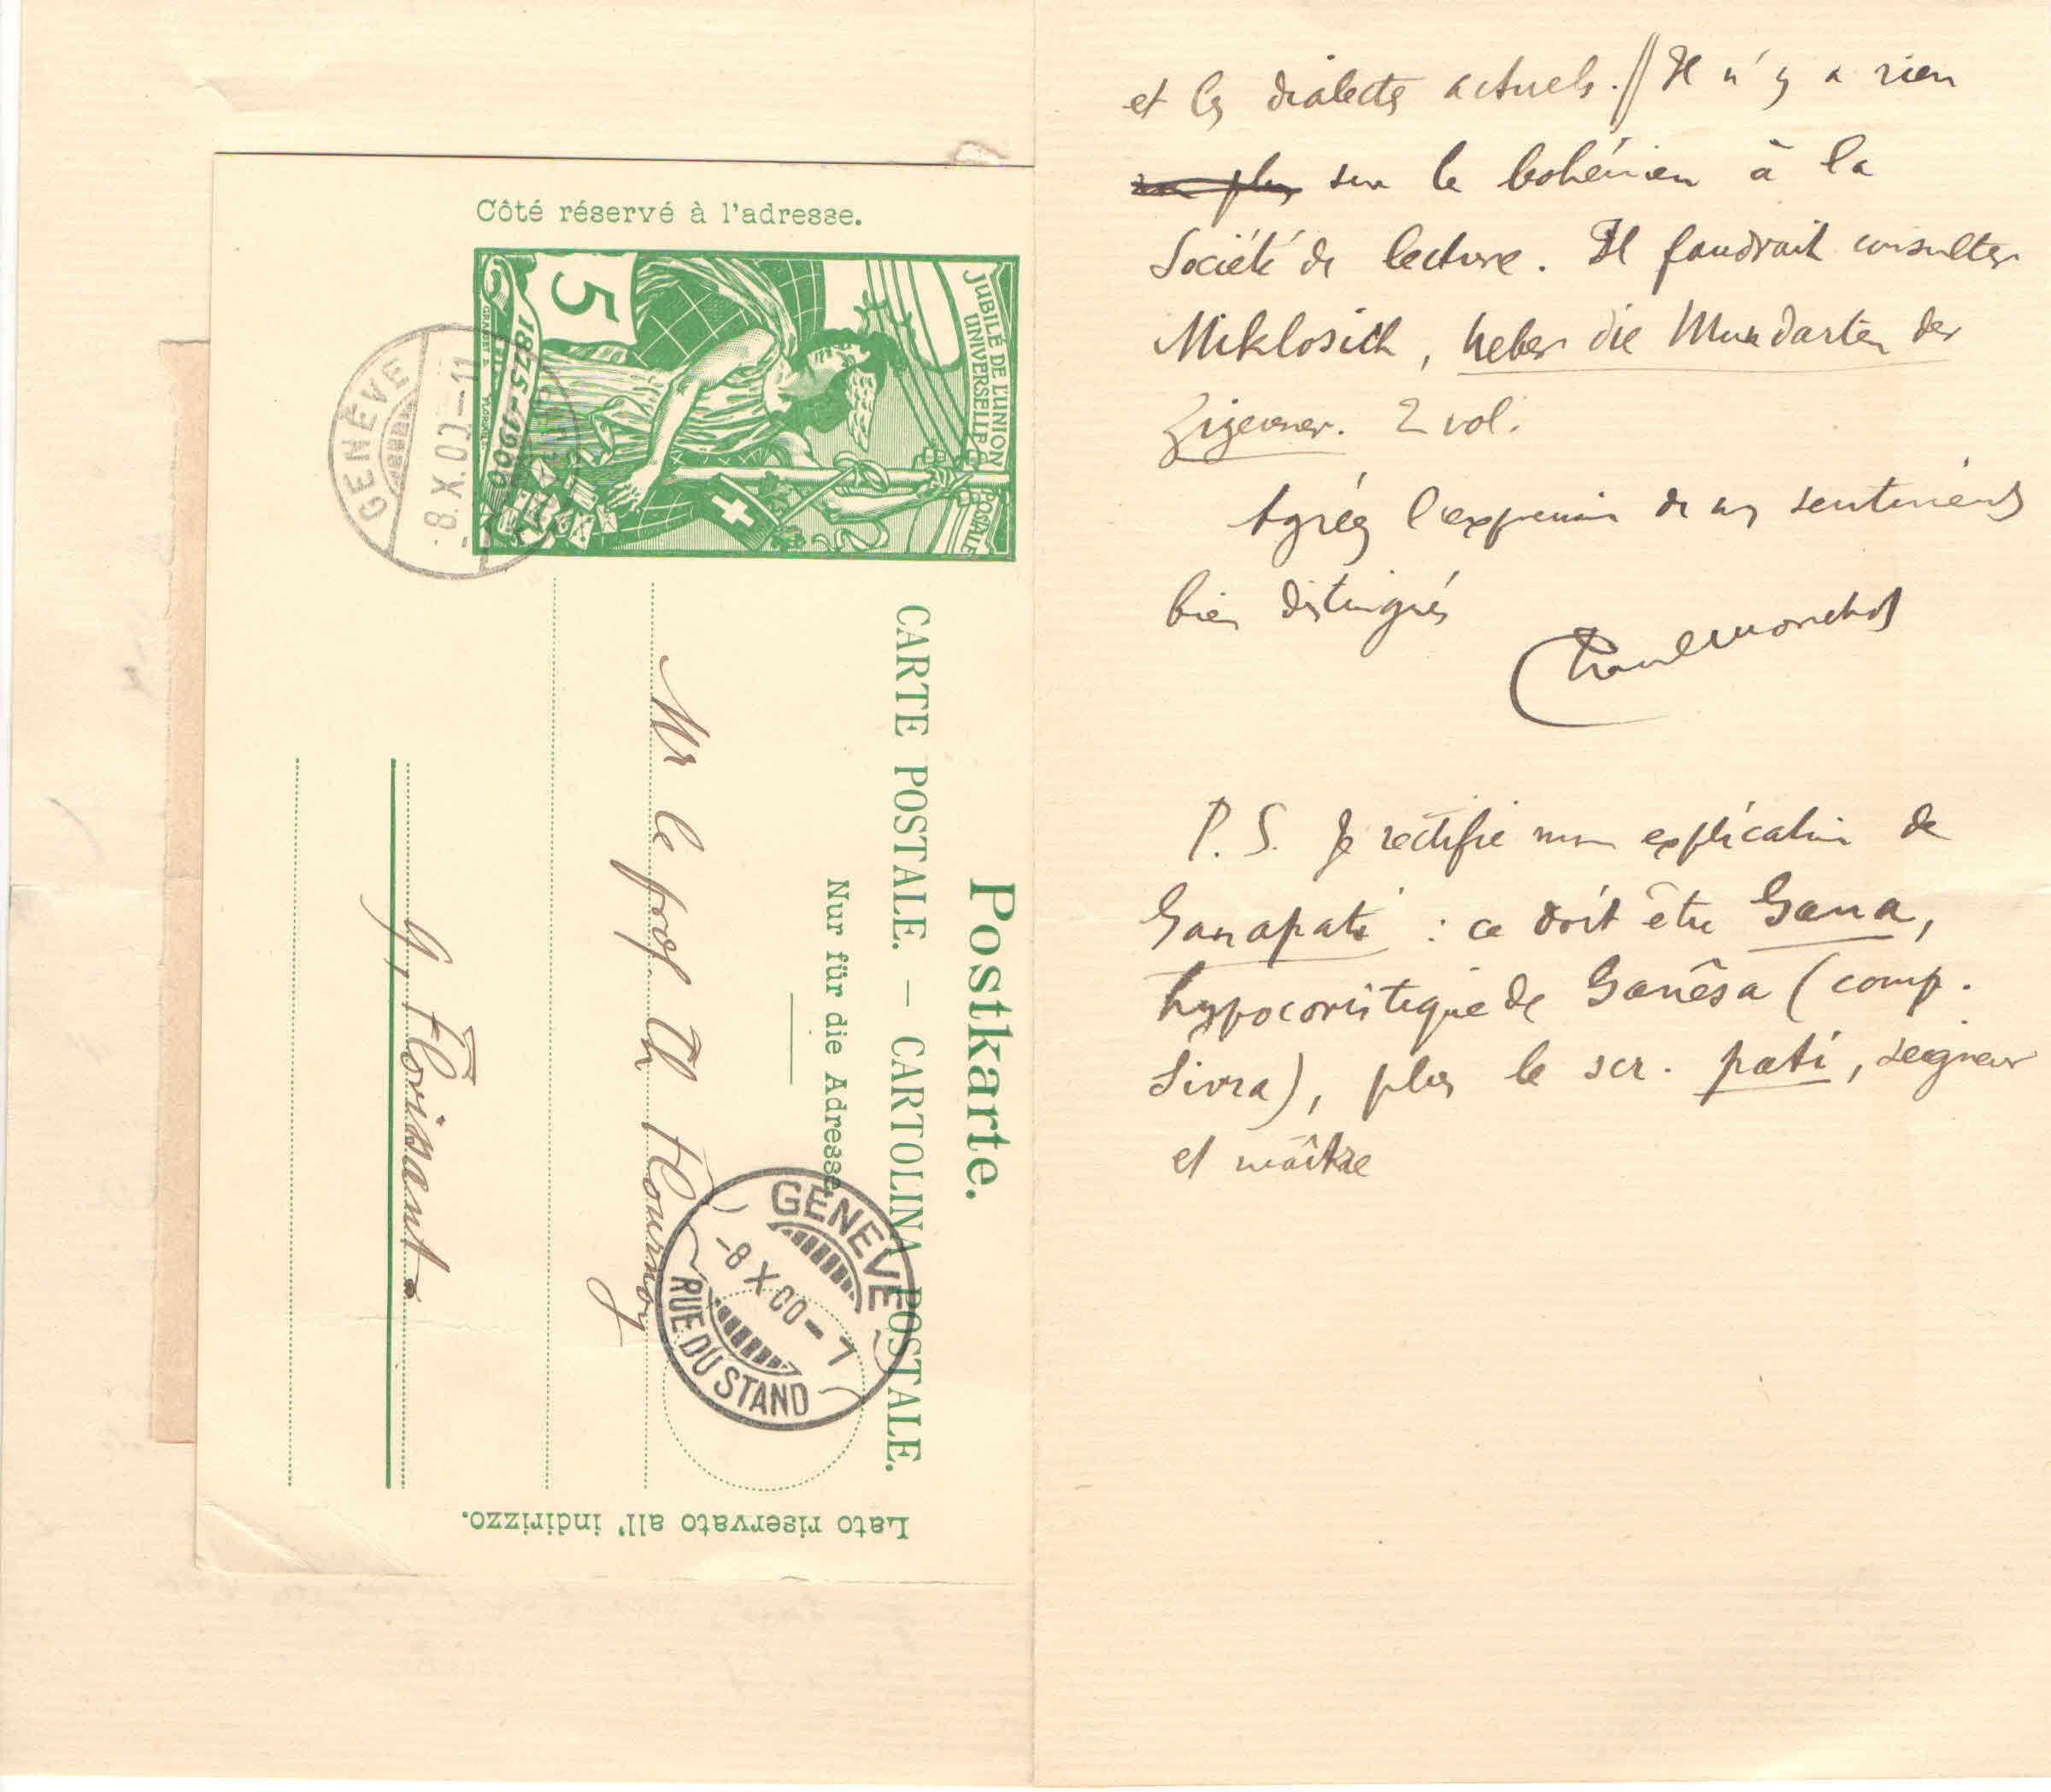 Côté réservé à l'adresse.
JUBILÉ DE L'UNION
UNIVERSELLE
POSTALE
5
1875-1900
GENÈVE
-8.X.00-11
Postkarte.
CARTE POSTALE. — CARTOLINA POSTALE.
Nur für die Adresse
Mr le prof. Th Flournoy
9, Florissant.
GENÈVE
-8 X 00-
RUE DU STAND
Lato riservato all' indirizzo.
et les dialectes actuels. // Il n'y a rien
sur le bohémien à la
Société de lecture. Il faudrait consulter
Miklosich, Ueber die Mundarten der
Zigeuner. 2 vol.
Agréez l'expression de mes sentiments
bien distingués
P. S. Je rectifie mon explication de
Ganapati : ce doit être Gana,
hypocoristique de Ganêsa (comp.
Sivra), plus le scr. pati, seigneur
et maître